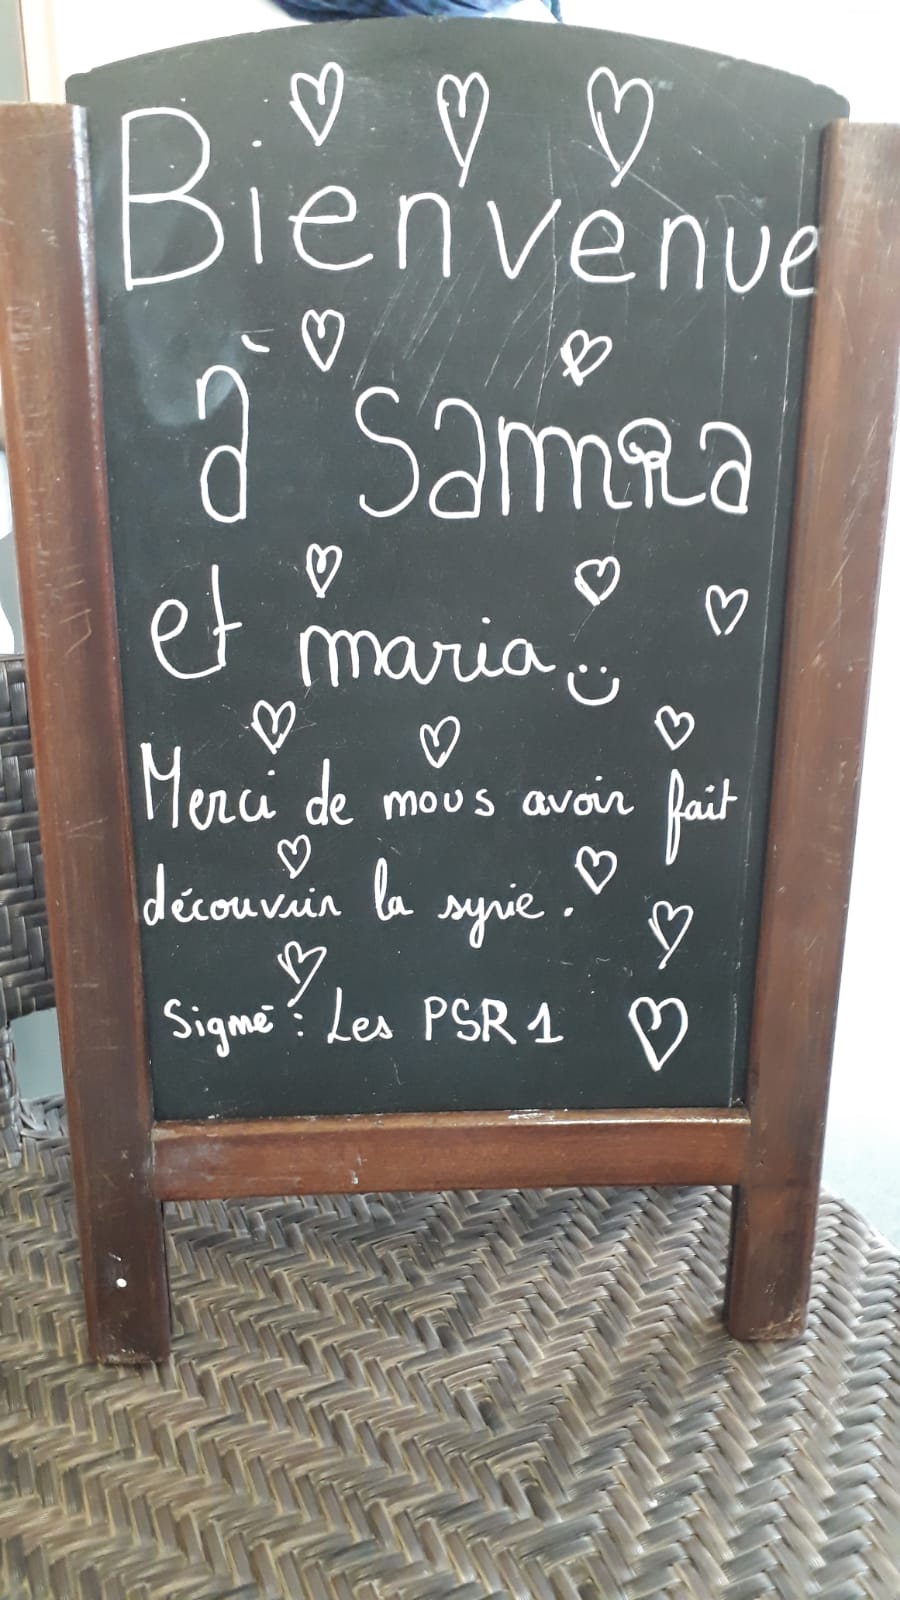 Bienvenue
à Samira
et maria
Merci de nous avoir fait
découvrir la syrie.
Signé : Les PSR 1